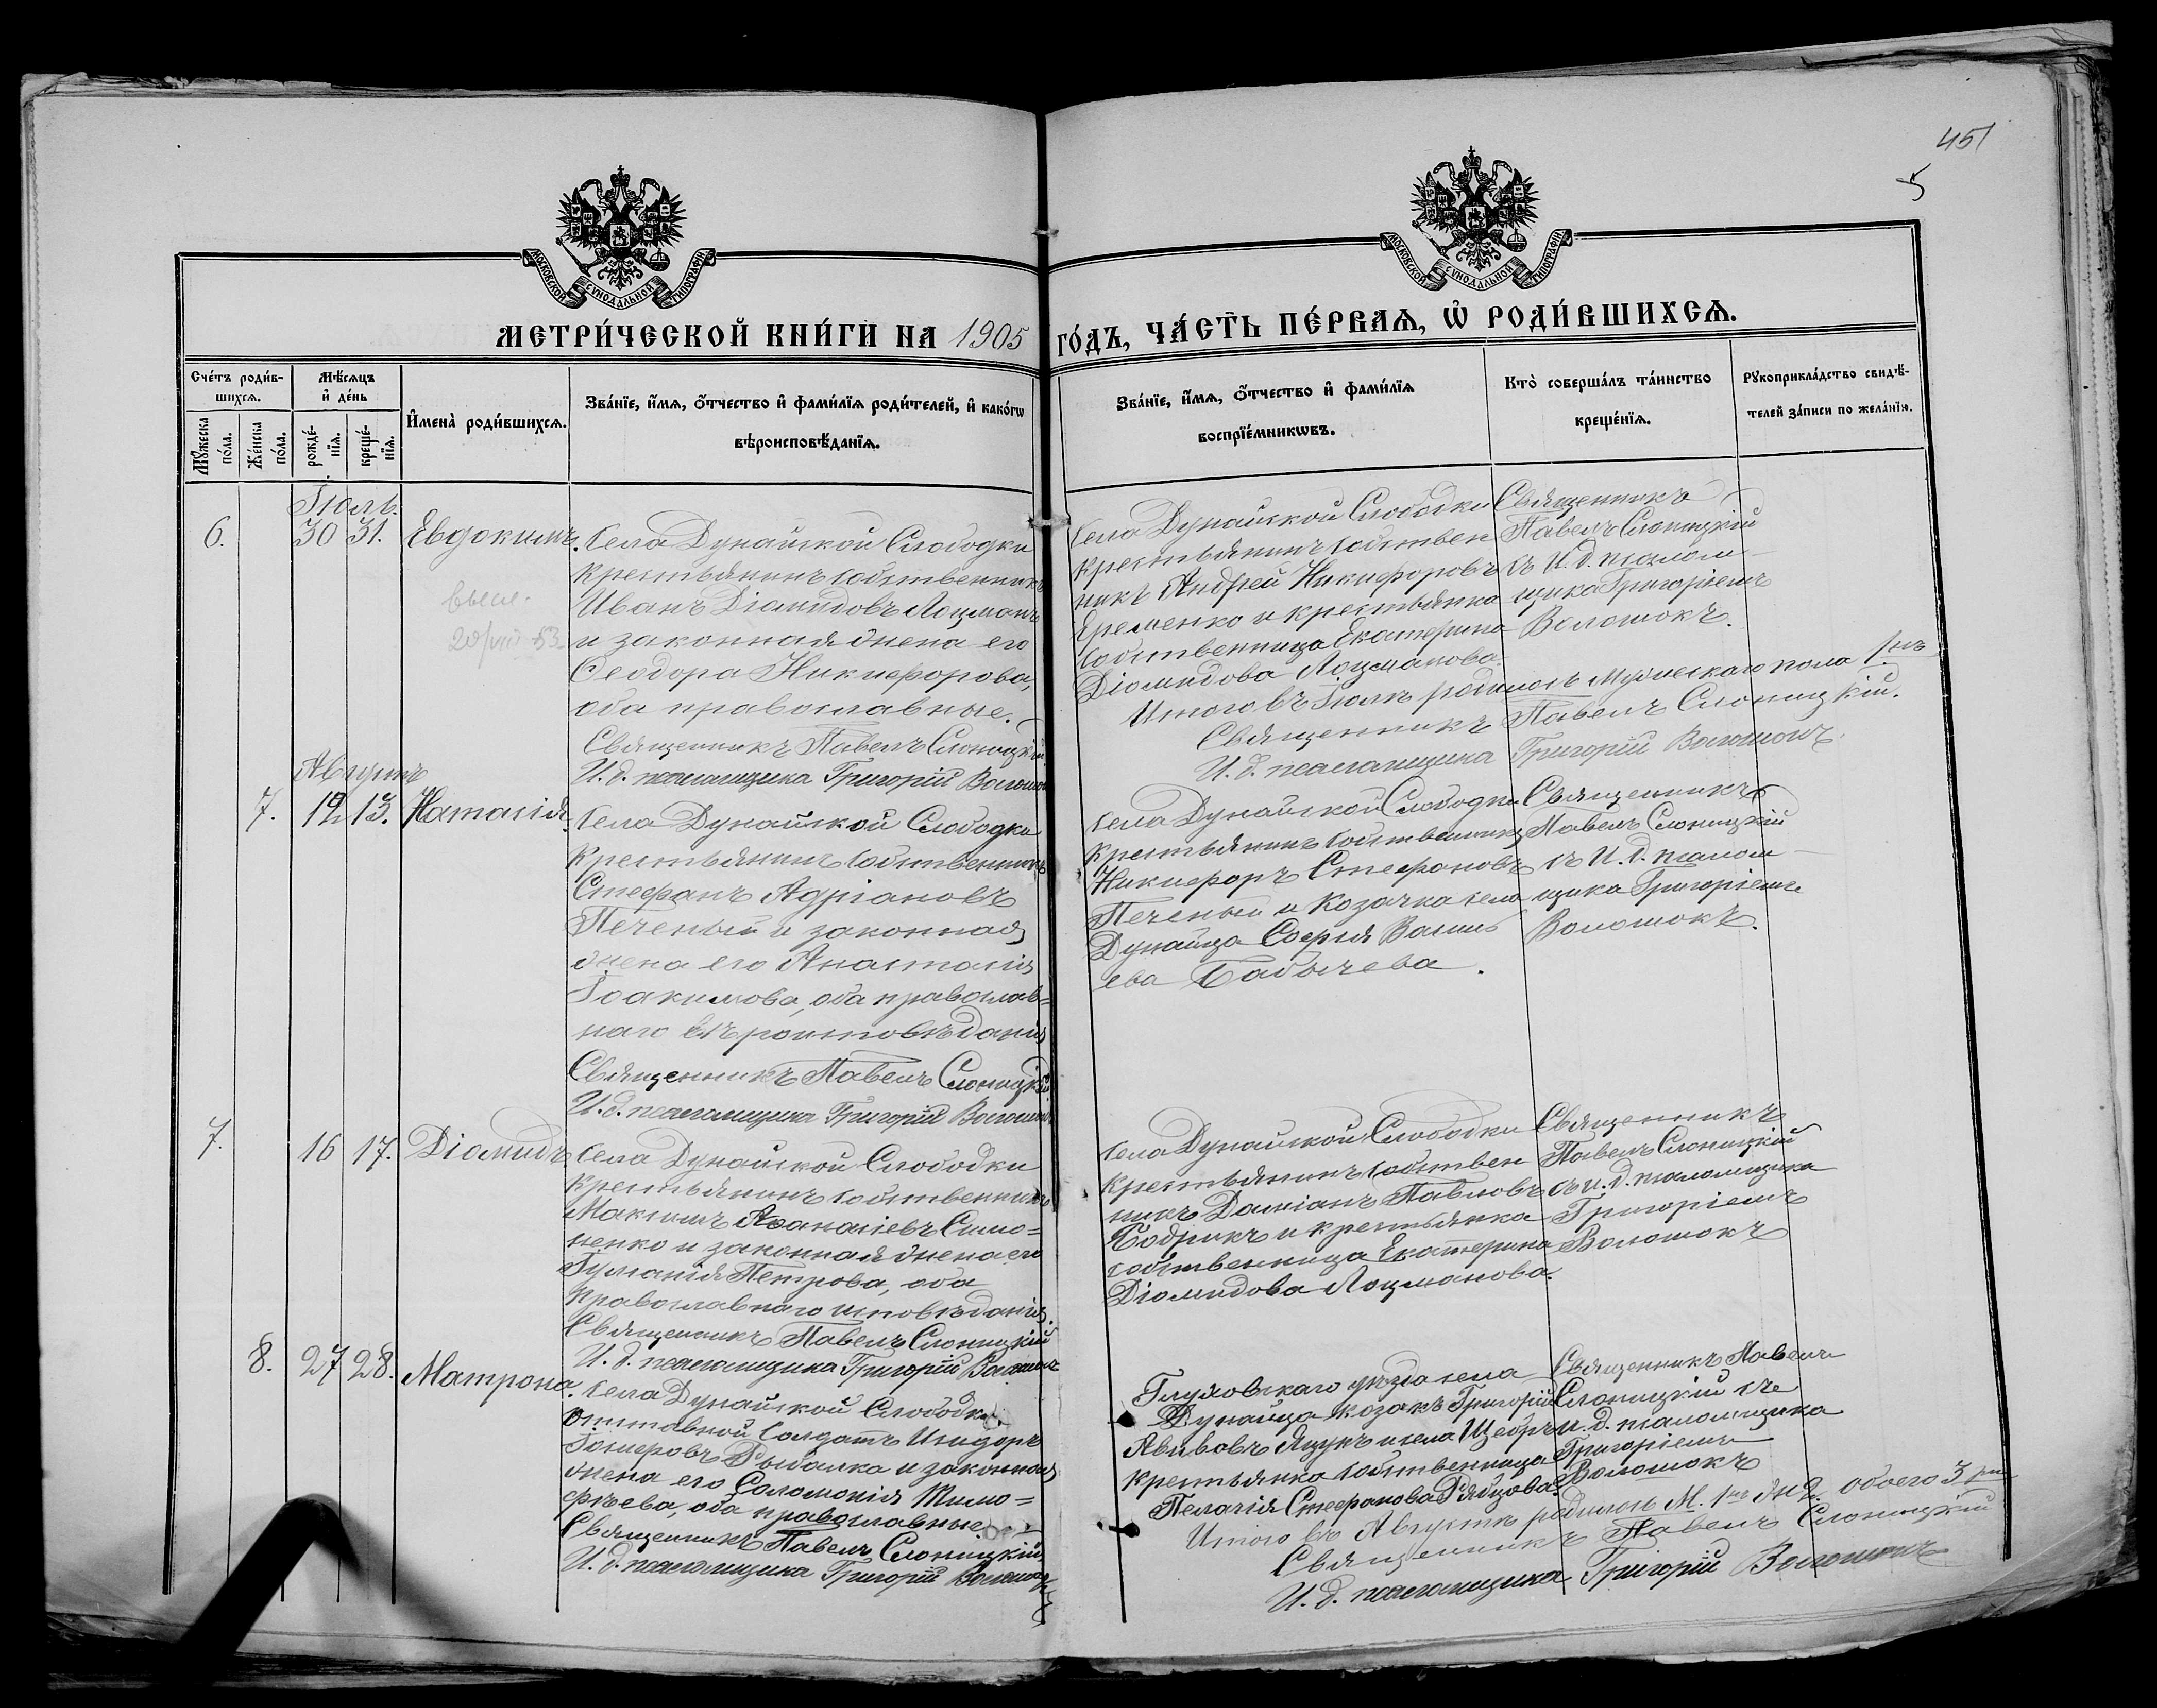 451
5
МОСКОВСКОЙ СѴНОДАЛЬНОЙ ТИПОГРАФІИ
МОСКОВСКОЙ СѴНОДАЛЬНОЙ ТИПОГРАФІИ
МЕТРИ́ЧЕСКОЙ КНИ́ГИ НА 1905 ГО́ДЪ, ЧА́СТЬ ПЕ́РВАѦ, Ѡ҆ РОДИ́ВШИХСѦ.
Сче́тъ роди́в-
шихсѧ.
Мꙋ́жеска по́ла.
Же́нска по́ла.
Мѣ́сѧцъ
и҆ де́нь
рожде́-
нїѧ.
креще́-
нїѧ.
И҆мена̀ роди́вшихсѧ.
Зва́нїе, и҆́мѧ, ѻ҆́тчество и҆ фами́лїѧ роди́телей, и҆ како́гѡ
вѣроисповѣ́данїѧ.
Зва́нїе, и҆́мѧ, ѻ҆́тчество и҆ фами́лїѧ
воспрїе́мникѡвъ.
Кто̀ соверша́лъ та́инство
креще́нїѧ.
Рꙋкоприкла́дство свидѣ́-
телей за́писи по жела́нїю.
Іюль.
6. 30 31. Евдокимъ.
Села Дунайской Слободки
крестьянинъ собственникъ
Иванъ Діомидовъ Лоцманъ
и законная жена его
Феодора Никифорова,
оба православные.
Священникъ Павелъ Слоницкій
И. д. псаломщика Григорій Волошокъ
Села Дунайской Слободки
крестьянинъ собствен
никъ Андрей Никифоровъ
Еременко и крестьянка
собственница Екатерина
Діомидова Лоцманова.
Священникъ
Павелъ Слоницкій
съ И. д. псалом-
щика Григоріемъ
Волошокъ.
Итого въ Іюлѣ родилось мужескаго пола 1нъ
Священникъ Павелъ Слоницкій.
И. д. псаломщика Григорій Волошокъ
Августъ
7. 12 13. Наталія.
Села Дунайской Слободки
крестьянинъ собственникъ
Стефанъ Адріановъ
Печеный и законная
жена его Анастасія
Іоакимова, оба православ=
наго вѣроисповѣданія
Священникъ Павелъ Слоницкій
И. д. псаломщика Григорій Волошокъ
Села Дунайской Слободки
крестьянинъ собственникъ
Никифоръ Стефановъ
Печеный и козачка села
Дунайца Софія Василь
ева Бабичева.
Священникъ
Павелъ Слоницкій
съ И. д. псалом-
щика Григоріемъ
Волошокъ.
7. 16 17. Діомидъ.
Села Дунайской Слободки
крестьянинъ собственникъ
Максимъ Аѳанасіевъ Симо=
ненко и законная жена его
Іуліанія Петрова, оба
православнаго исповѣданія.
Священникъ Павелъ Слоницкій
И. д. псаломщика Григорій Волошокъ
Села Дунайской Слободки
крестьянинъ собствен
никъ Даміанъ Павловъ
Бодрикъ и крестьянка
собственница Екатерина
Діомидова Лоцманова.
Священникъ
Павелъ Слоницкій
съ и. д. псаломщика
Григоріемъ
Волошокъ
8. 27 28. Матрона.
Села Дунайской Слободки
отставной солдатъ Исидоръ
Рыбалка и законная
жена его Соломонія Тимо=
фѣева, оба православные.
Священникъ Павелъ Слоницкій
И. д. псаломщика Григорій Волошокъ
Глуховскаго уѣзда села
Дунайца козакъ Григорій
Авивовъ Яцукъ и села
крестьянка собственница
Пелагія Стефанова Рябцова.
Священникъ Павелъ
Слоницкій съ
и. д. псаломщика
Григоріемъ
Волошокъ
Итого въ Августѣ родилось М. 1нъ Ж 2 обоего 3
Священникъ Павелъ Слоницкій
И. д. псаломщика Григорій Волошокъ